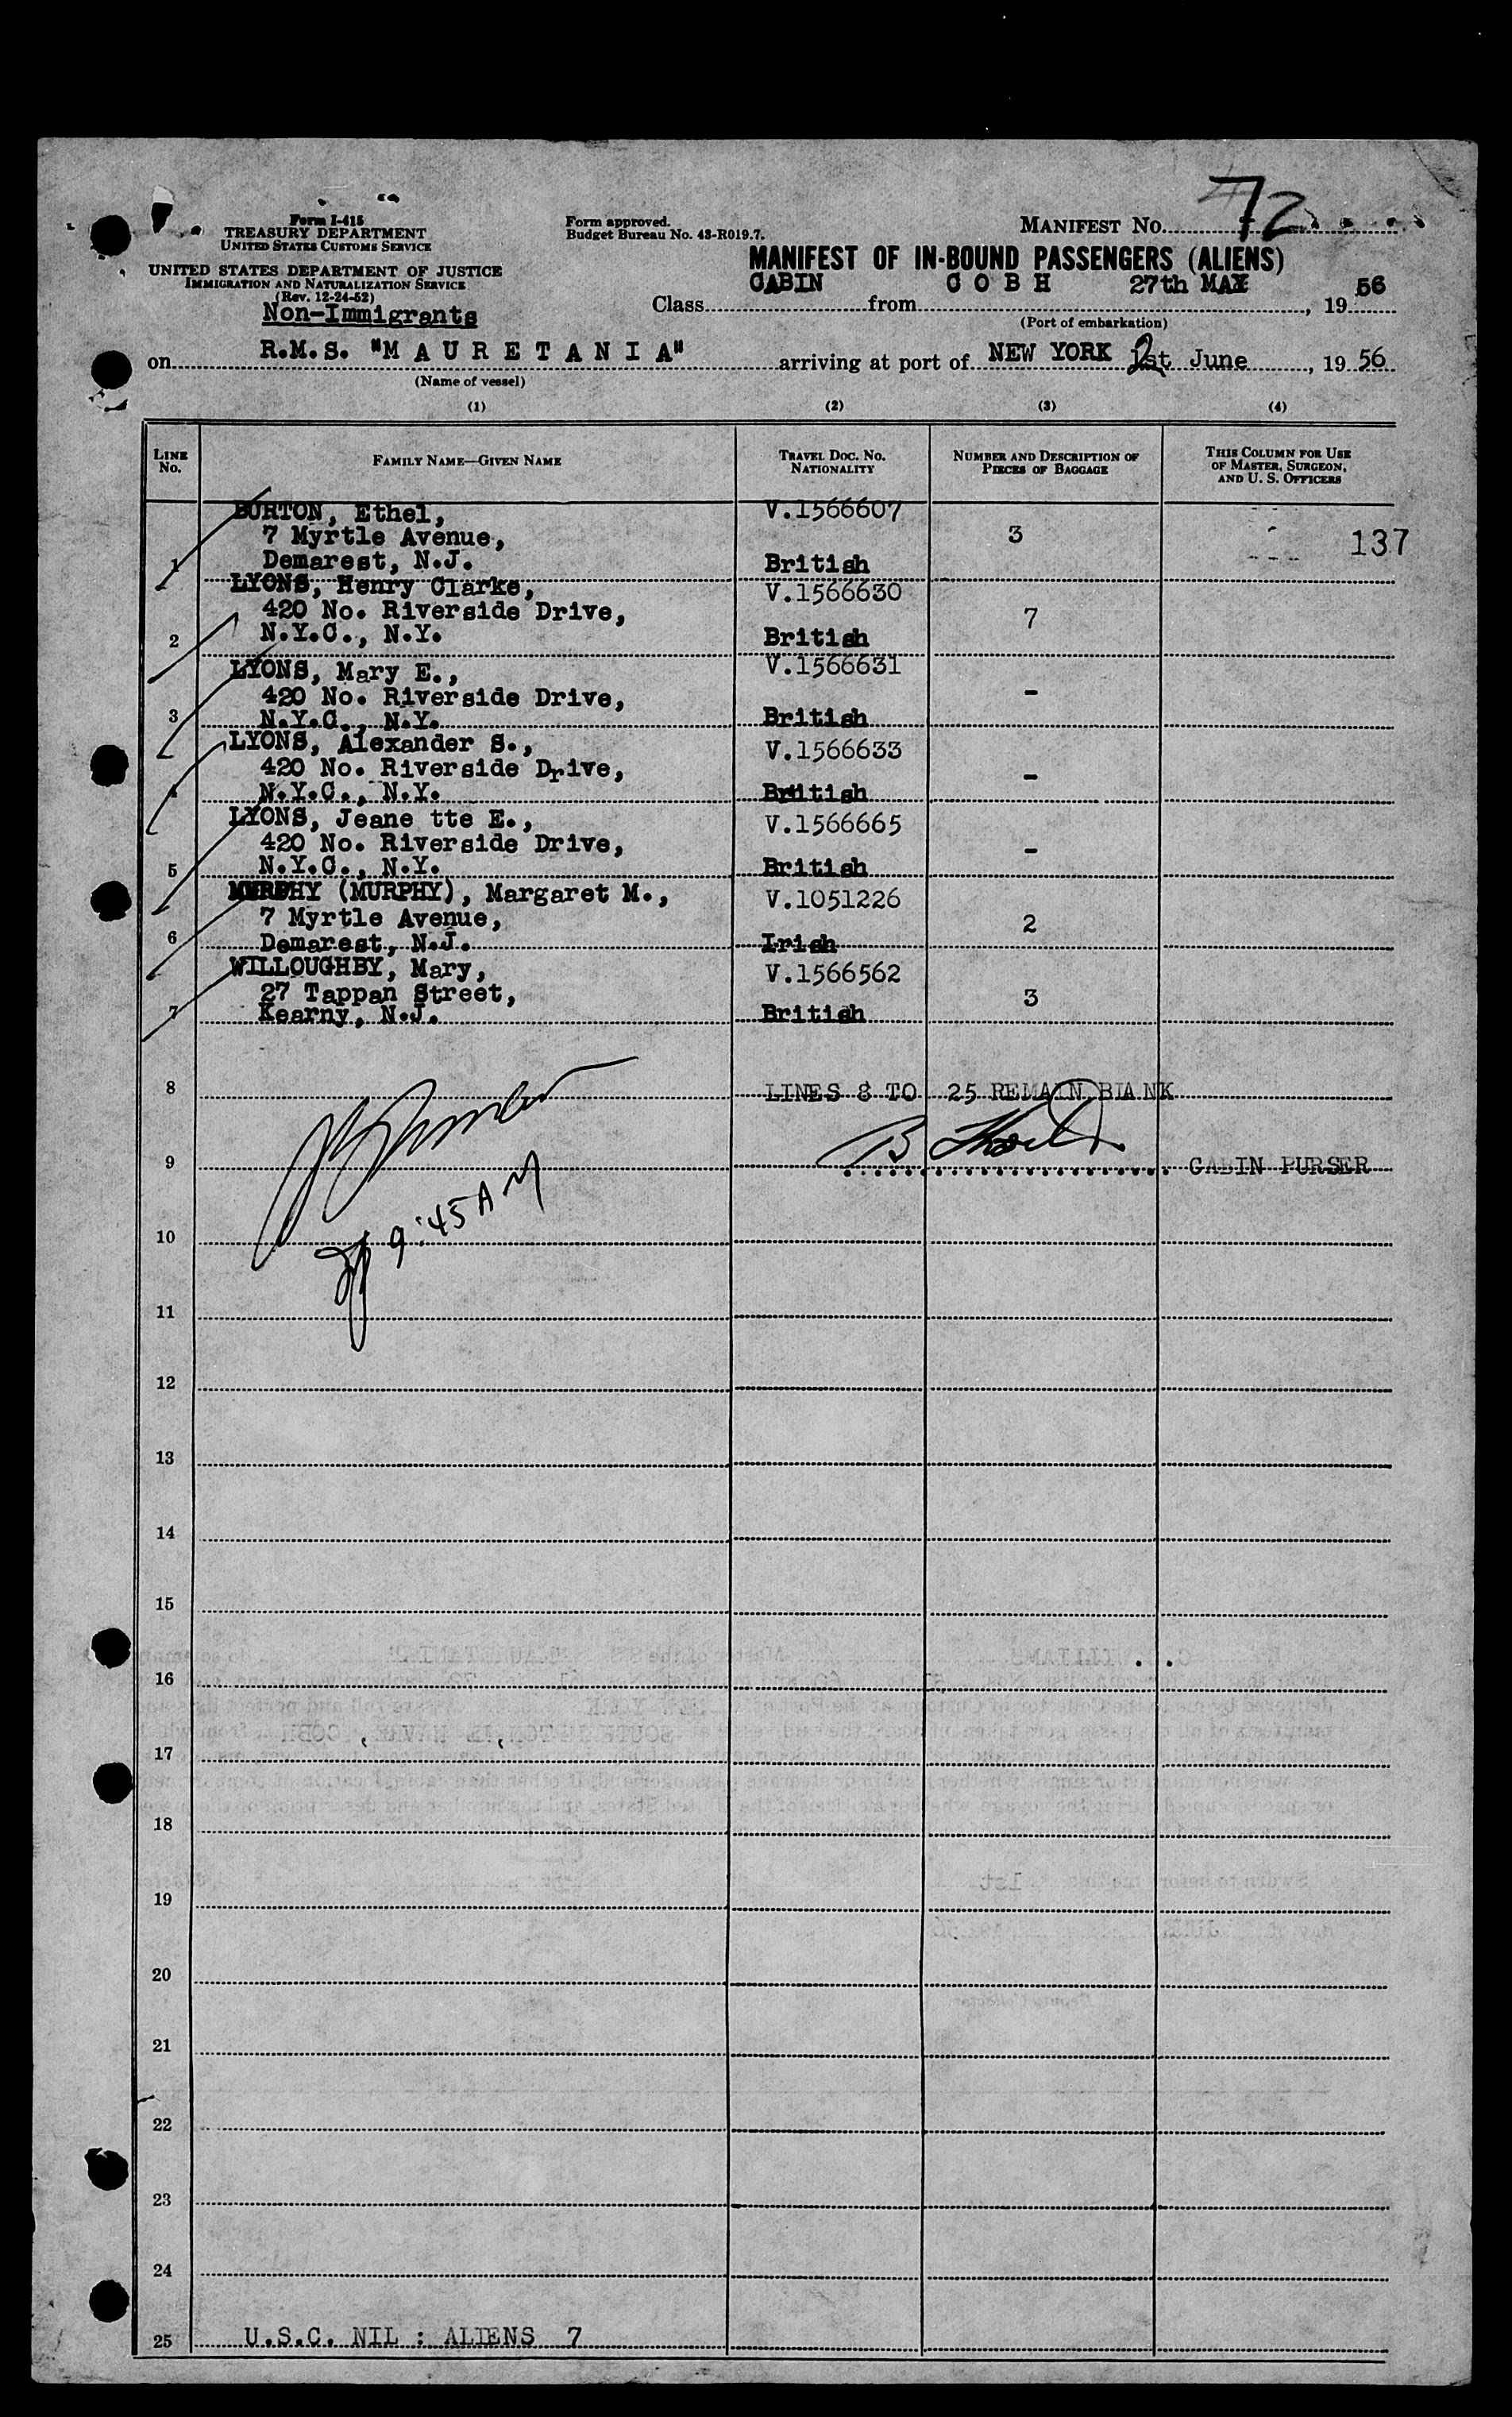 Form I-415
TREASURY DEPARTMENT
UNITED STATES CUSTOMS SERVICE
UNITED STATES DEPARTMENT OF JUSTICE
IMMIGRATION AND NATURALIZATION SERVICE
(Rev. 12-24-52)
Non-Immigrants
Form approved.
Budget Bureau No. 43-R019.7.
MANIFEST No. 72
MANIFEST OF IN-BOUND PASSENGERS (ALIENS)
Class CABIN from COBH 27th MAY, 19 56
(Port of embarkation)
on R.M.S. "MAURETANIA" arriving at port of NEW YORK 2 1st June, 19 56
(Name of vessel)
(1) (2) (3) (4)
LINE No. FAMILY NAME—GIVEN NAME TRAVEL DOC. NO. NATIONALITY NUMBER AND DESCRIPTION OF PIECES OF BAGGAGE THIS COLUMN FOR USE OF MASTER, SURGEON, AND U. S. OFFICERS
BURTON, Ethel, V.1566607
7 Myrtle Avenue, 3 137
1 Demarest, N.J. British
LYONS, Henry Clarke, V.1566630
420 No. Riverside Drive, 7
2 N.Y.C., N.Y. British
LYONS, Mary E., V.1566631
420 No. Riverside Drive, -
3 N.Y.C., N.Y. British
LYONS, Alexander S., V.1566633
420 No. Riverside Drive, -
4 N.Y.C., N.Y. British
LYONS, Jeane tte E., V.1566665
420 No. Riverside Drive, -
5 N.Y.C., N.Y. British
MURPHY (MURPHY), Margaret M., V.1051226
7 Myrtle Avenue, 2
6 Demarest, N.J. Irish
WILLOUGHBY, Mary, V.1566562
27 Tappan Street, 3
7 Kearny, N.J. British
8 LINES 8 TO 25 REMAIN BLANK
9 CABIN PURSER
9:45 AM
10
11
12
13
14
15
16
17
18
19
20
21
22
23
24
25 U.S.C. NIL : ALIENS 7